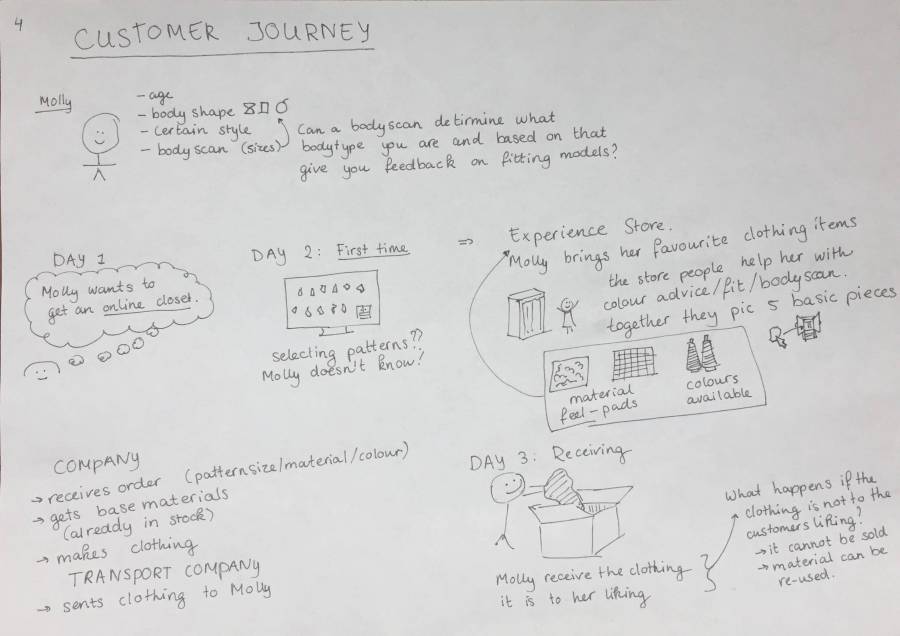 4
CUSTOMER JOURNEY
Molly
- age
- body shape
- certain style
- body scan (sizes)
Can a bodyscan detirmine what
bodytype you are and based on that
give you feedback on fitting models?
DAY 1
Molly wants to
get an online closet.
DAY 2: First time
selecting patterns??
Molly doesn't know!
⇒ Experience Store.
Molly brings her favourite clothing items
the store people help her with
colour advice/fit/bodyscan.
together they pic 5 basic pieces
material
feel-pads
colours
available
COMPANY
→ receives order (patternsize/material/colour)
→ gets base materials
(alreddy in stock)
→ makes clothing
TRANSPORT COMPANY
→ sents clothing to Molly
DAY 3: Receiving
Molly receive the clothing
it is to her liking
What happens if the
clothing is not to the
customers liking?
→ it cannot be sold
→ material can be
re-used.